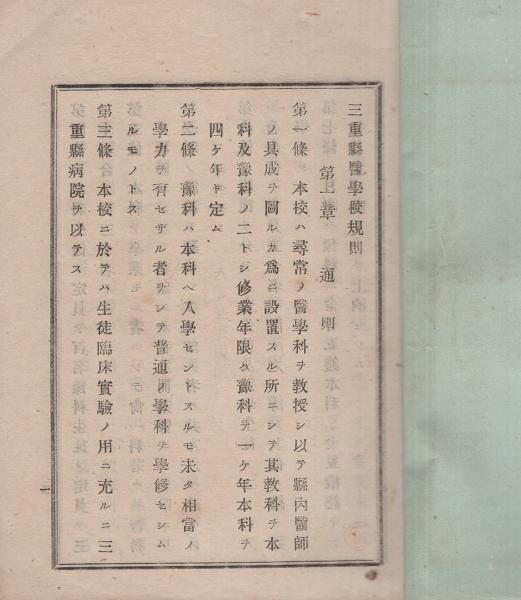 三重縣醫學校規則
第一章 通則
第一條 本校ハ尋常ノ醫學科ヲ教授シ以テ縣內醫師
ノ具成ヲ圖ルカ爲ニ設置スル所ニシテ其教科ヲ本
科及豫科ノ二トシ修業年限ハ豫科ヲ一ケ年本科ヲ
四ケ年ト定ム
第二條 豫科ハ本科ヘ入學セントスルモ未タ相當ノ
學力ヲ有セサル者ヲシテ普通ノ學科ヲ學修セシム
ルモノトス
第三條 本校ニ於テハ生徒臨床實驗ノ用ニ充ルニ三
重縣病院ヲ以テス
一